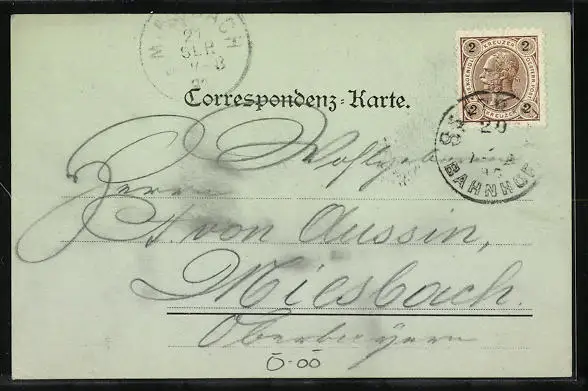 MIESBACH
21
SEP
7-8
2
KREUZER
2
2
2
KREUZER
20
BAHNHOF
Correspondenz-Karte.
Wohlgeboren
Herrn
A von Aussin,
Miesbach.
Oberbayern
0.00